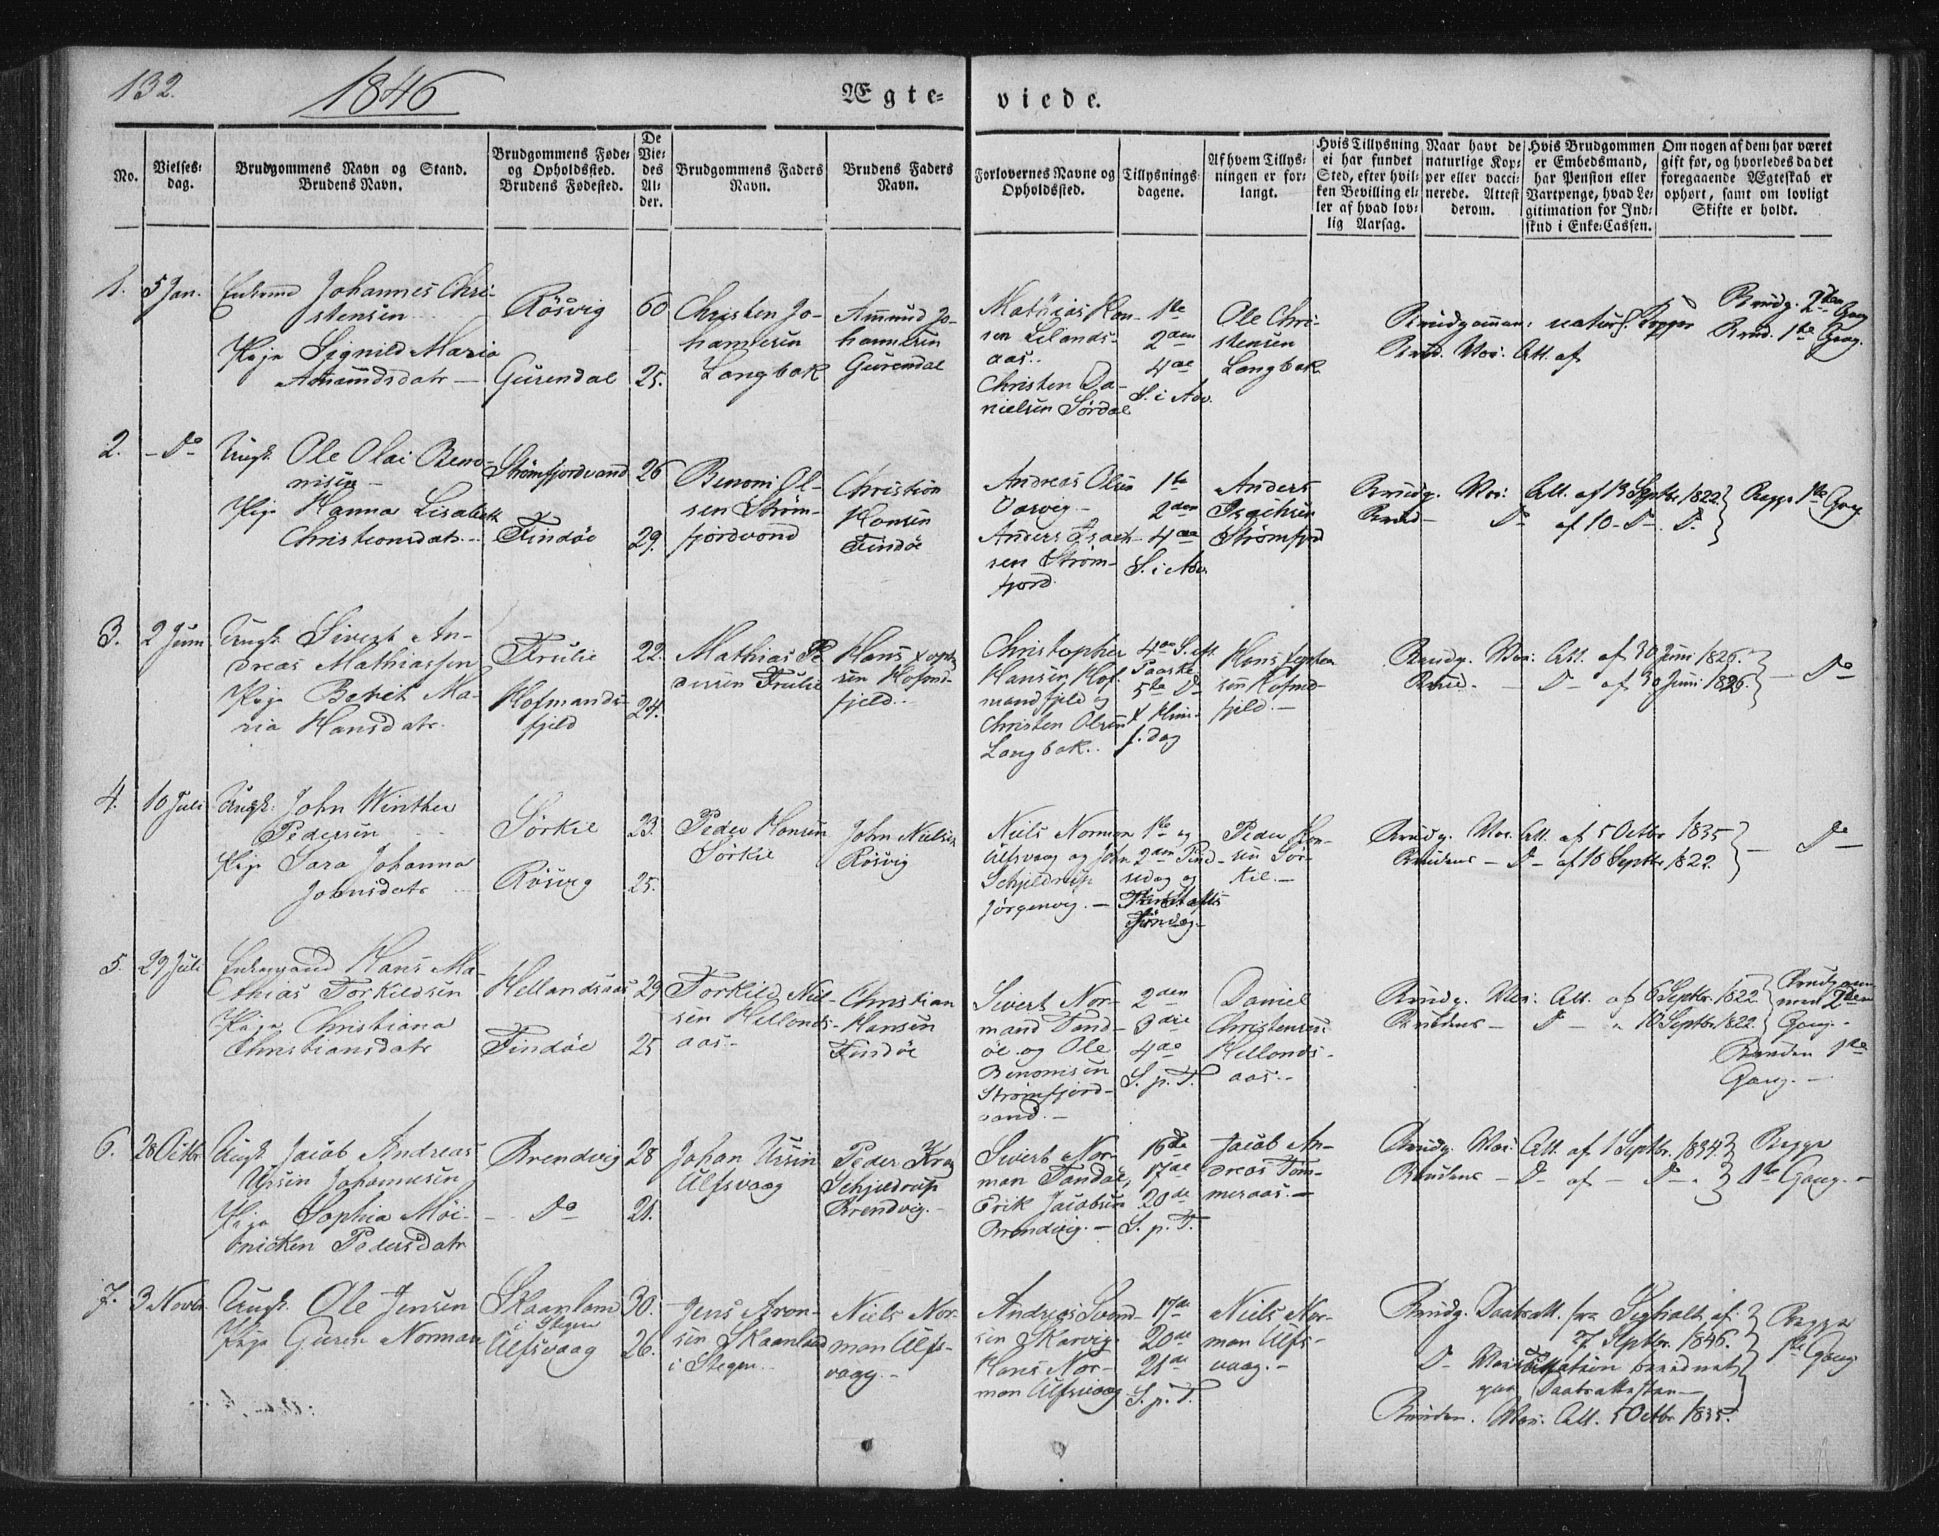 132.
1846
Ægte-
viede.
No.
Vielses-
dag.
Brudgommens Navn og Stand.
Brudens Navn.
Brudgommens Føde-
og Opholdssted.
Brudens Fødested.
De
Vie-
des
Al-
der.
Brudgommens Faders
Navn.
Brudens Faders
Navn.
Forlovernes Navne og
Opholdssted.
Tillysnings-
dagene.
Af hvem Tillys-
ningen er for-
langt.
Hvis Tillysning
ei har fundet
Sted, efter hvil-
ken Bevilling el-
ler af hvad lov-
lig Aarsag.
Naar havt de
naturlige Kop-
per eller vacci-
nerede. Attest
derom.
Hvis Brudgommen
er Embedsmand,
har Pension eller
Vartpenge, hvad Le-
gitimation for Ind-
skud i Enke-Cassen.
Om nogen af dem har været
gift før, og hvorledes da det
foregaaende Ægteskab er
ophørt, samt om lovligt
Skifte er holdt.
1.
5 Jan.
Enkemd Johannes Chri-
stensen
Pige Signild Maria
Amundsdatr
Rösvig
Gürendal
60
25.
Christen Jo-
hannesen
Langbak
Amund Jo-
hannesen
Gürendal
Mathias Han-
sen Lilands-
aas.
Christen Da-
nielsen Sørdal
1te
2den
4de
S. i Adv.
Ole Chri-
stensen
Langbak
Brudgommen naturl. Kopper
Brud. Vac. Att. af
Brudg. 2den Gang
Brud. 1te Gang.
2.
Do
Ungk. Ole Olai Beno-
nisen
Pige Hanna Lisabeth
Christiansdatr
Strømfjordvand
Findöe
26
29.
Benoni Ol-
sen Strøm-
fjordvand
Christian
Hansen
Findöe
Andreas Olsen
Vasvig
Anders Isach-
sen Strøm-
fjord
1te
2den
4de
S. i Adv.
Anders
Isachsen
Strømfjord
Brudg. Vac. Att. af 13 Septbr. 1822.
Brud - Do af 10 - Do
Begge 1te Gang
3.
2 Juni
Ungk. Sivert An-
dreas Mathiassen
Pige Berit Ma-
ria Hansdatr
Trulie
Hofmands-
fjeld
22.
24.
Mathias Pe
dersen Trulie
Hans
sen Hofmd-
fjeld.
Christopher
Hansen Hof-
mandfjeld og
Christen Olsen
Langbak.
4de S. eft.
Paaske
5te Do
Him-
f. dag
Hans
sen Hofmd-
fjeld.
Brudg. Vac. Att. af 30 Juni 1826.
Brud. - Do - af 30 Juni 1826.
Do
4.
10 Juli
Ungk. John Winther
Pedersen
Pige Sara Johanna
Johnsdatr
Sørkil
Rösvig
23.
25.
Peder Hansen
Sørkil
John Nielsen
Rösvig
Niels Norman
Ulfsvaag og John
Schjeldrup
Jörgenvig.
1te og
2den Pind-
sedag og
Søndag
Peder Han-
sen Sör-
kil.
Brudg. Vac. Att. af 5 Octbr 1835
Brudens - Do - af 10 Septbr. 1822.
Do
5.
29 Juli
Enkemand Hans Ma-
thias Torkildsen
Pige Christiana
Christiansdatr
Hellandsaas
Findöe
29
25
Torkild Niel-
sen Hellands-
aas
Christian
Hansen
Findöe
Sivert Nor-
mand Tand-
öe og Ole
Benonisen
Strømfjord-
vand.
2den
3die
4de
S. p. T.
Daniel
Christensen
Hellands-
aas.
Brudg. Vac. Att. af 6 Septbr. 1822.
Brudens - Do - 10 Septbr. 1822.
Brudgom-
men 2den
Gang.
Bruden 1te
Gang.
6.
28 Octbr
Ungk. Jacob Andreas
Ursin Johannesen
Pige Sophia Moi-
nicken Pedersdatr
Brendvig
Do
28
21.
Johan Ursin
Ulfsvaag
Peder Krag
Schjeldrup
Brendvig.
Sivert Nor-
man Tandöe,
Erik Jacobsen
Brendvig.
16de
17de
20de
S. p. T.
Jacob An-
dreas Tom-
meraas.
Brudg. Vac. Att. af 1 Septbr. 1834.
Brudens - Do af - Do
Begge
1te Gang.
7.
3 Novbr.
Ungk. Ole Jensen
Pige Guren Norman
Skaanland
i Stegen
Ulfsvaag
30.
26.
Jens Aron-
sen Skaanland
i Stegen.
Niels Nor-
man Ulfs-
vaag.
Andreas Svend-
sen Skarvig.
Hans Nor-
man Ulfsvaag
17de
20de
21de
S. p. T.
Niels Nor-
man Ulfs-
vaag.
Brudg. Daabsatt. fra af
27 Septbr. 1846.
Do Vaccination berednet
paa Daabsattesten
Bruden. Vac. Att. 5 Octbr 1835.
Begge
1te Gang